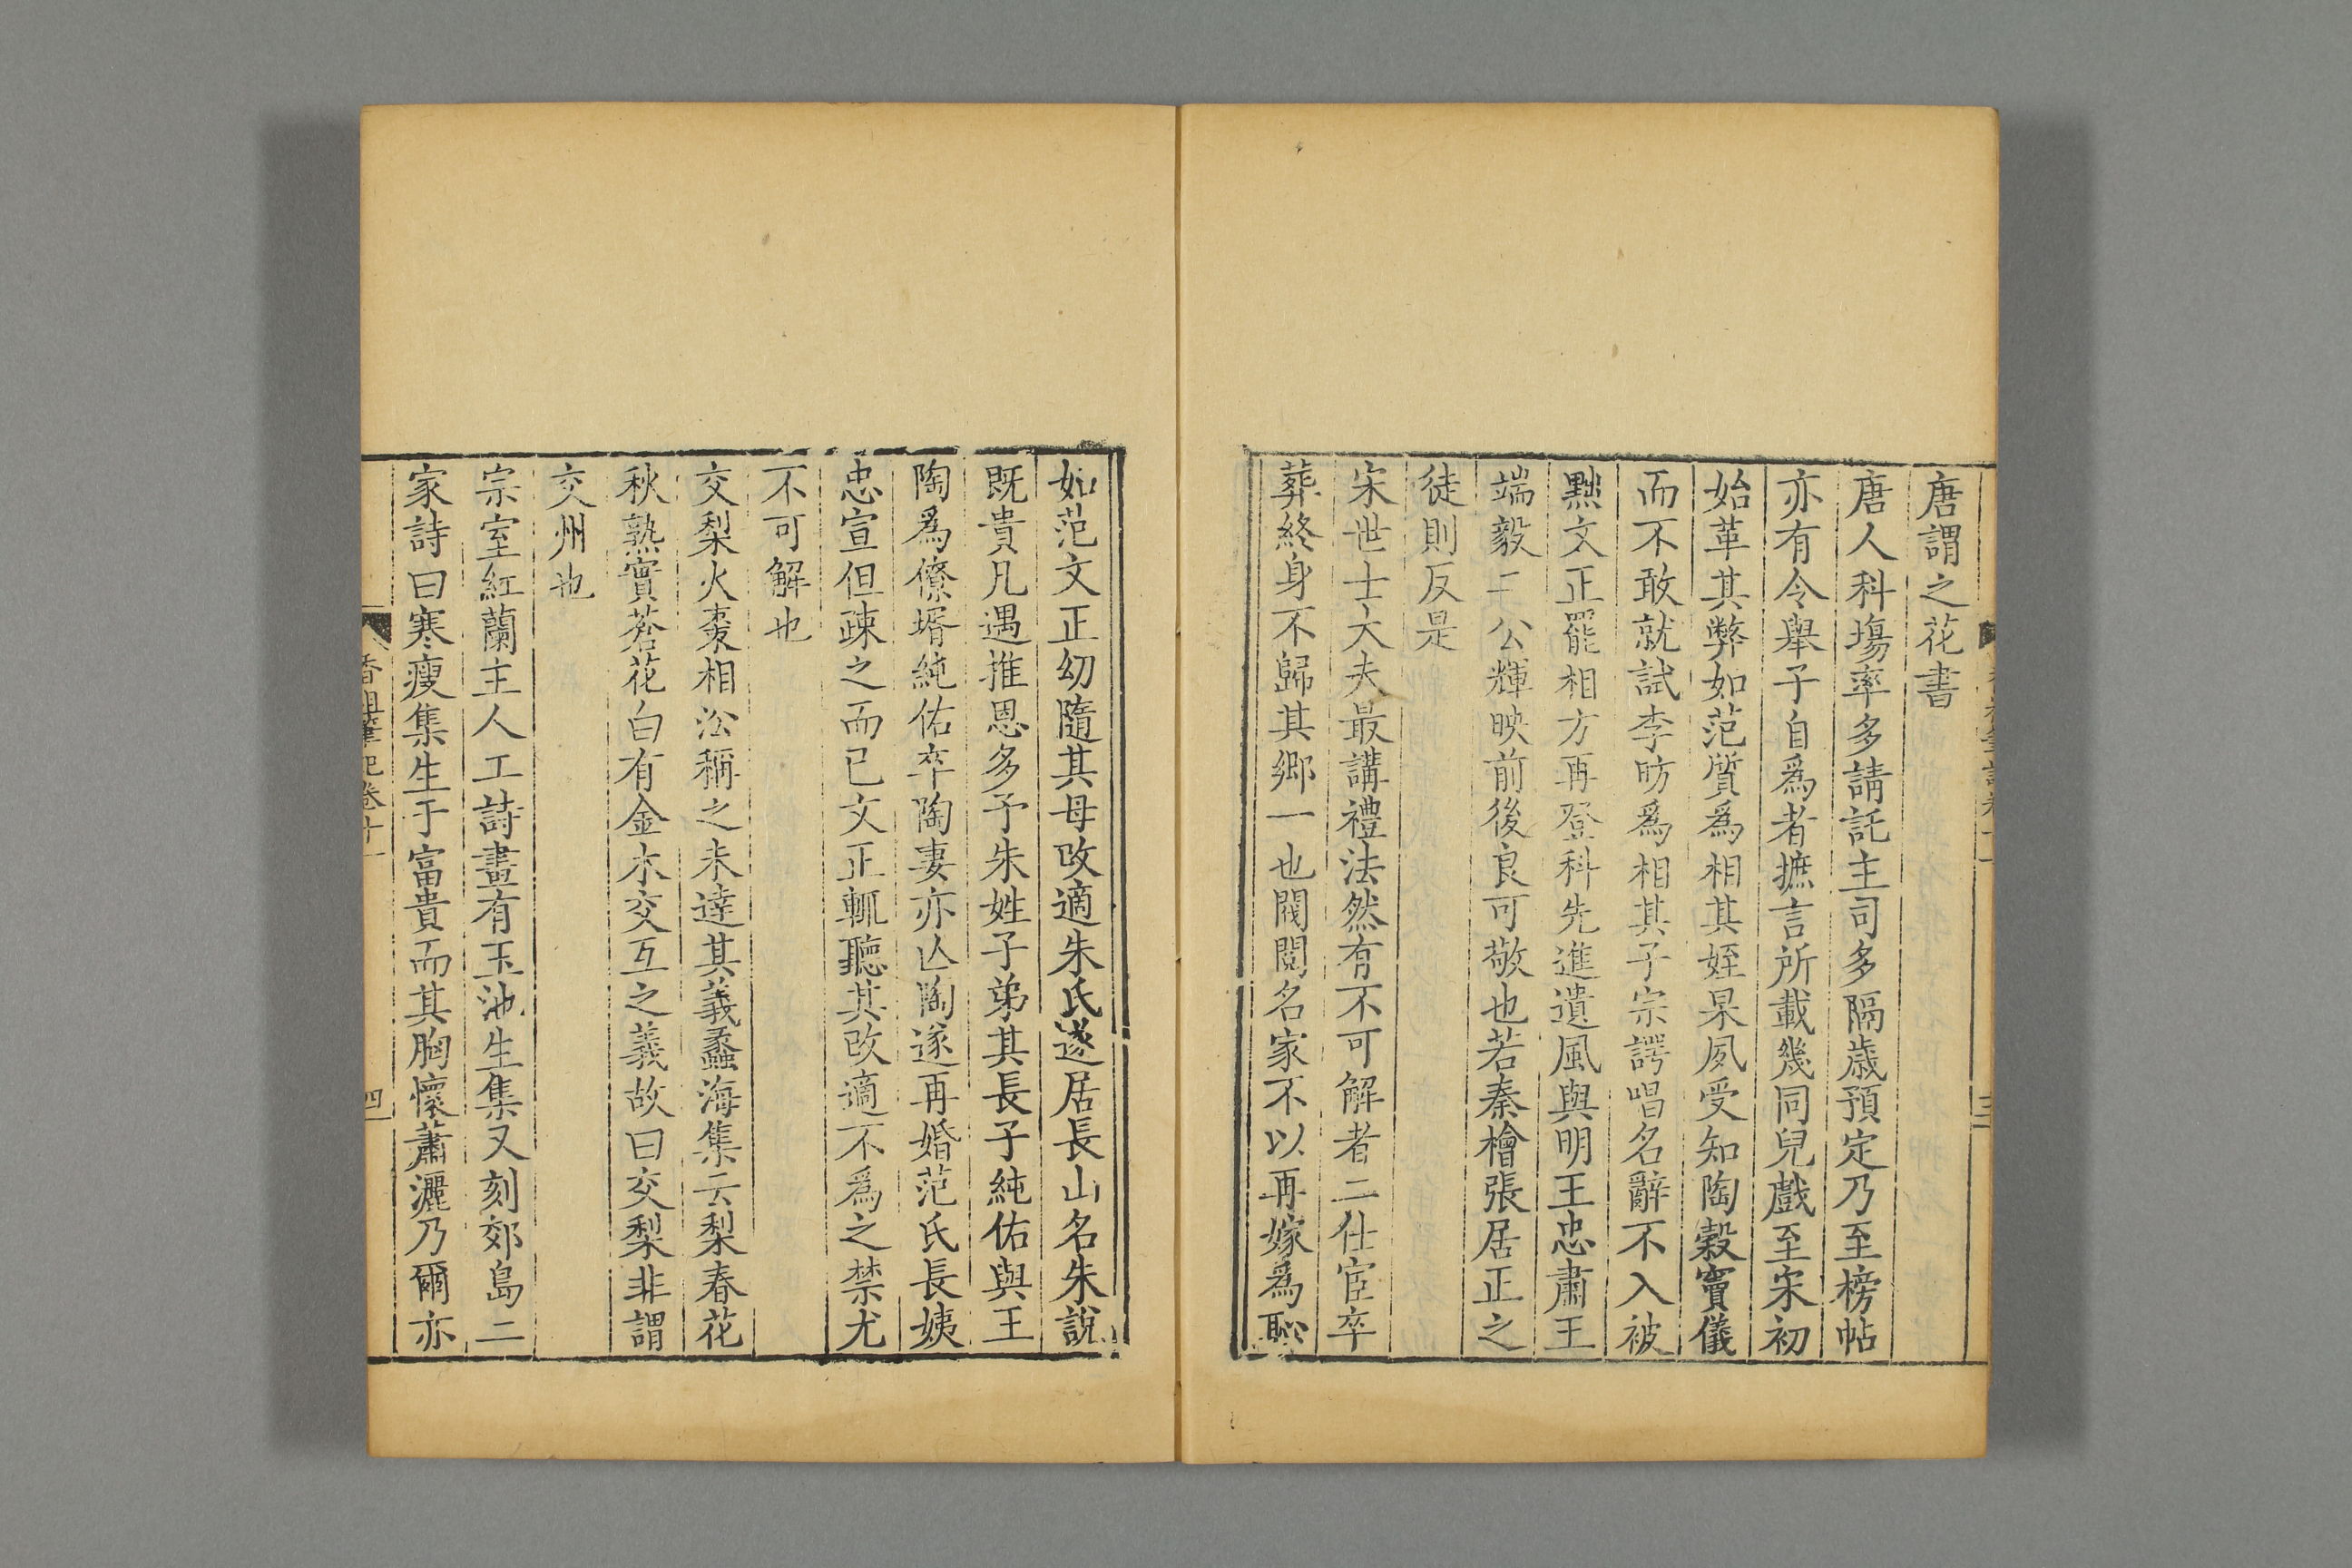 唐謂之花書
唐人科塲率多請託主司多隔歳預定乃至榜帖
亦有令舉子自爲者摭言所載幾同兒戲至宋初
始革其弊如范質爲相其姪杲夙受知陶穀竇儀
而不敢就試李昉爲相其子宗諤唱名辭不入被
黜文正罷相方再登科先進遺風與明王忠肅王
端毅二公輝映前後良可敬也若秦檜張居正之
徒則反是
宋世士大夫最講禮法然有不可解者二仕宦卒
葬終身不歸其鄉一也閥閱名家不以再嫁爲恥
如范文正幼隨其母改適朱氏遂居長山名朱說
既貴凡遇推恩多予朱姓子弟其長子純佑與王
陶爲僚壻純佑卒陶妻亦亾陶遂再婚范氏長姨
忠宣但疎之而已文正輒聽其改適不爲之禁尤
不可解也
交梨火棗相沿稱之未達其義蠡海集云梨春花
秋熟實蒼花白有金木交互之義故曰交梨非謂
交州也
宗室紅蘭主人工詩畫有玉池生集又刻郊島二
家詩曰寒瘦集生于富貴而其胸懷蕭灑乃爾亦
香祖筆記卷十一
四